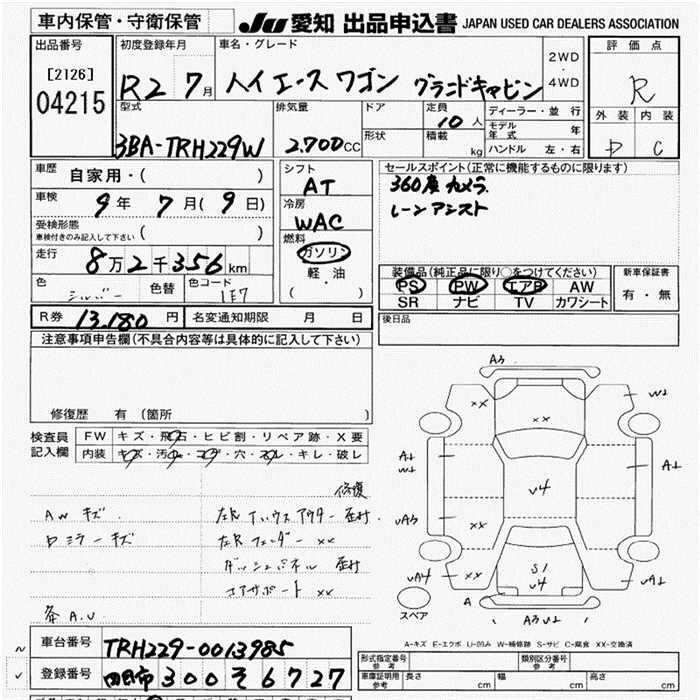 車内保管・守衛保管
JU 愛知 出品申込書 JAPAN USED CAR DEALERS ASSOCIATION
出品番号
[2126]
04215
初度登録年月
R2 7月
車名・グレード
ハイエースワゴン グランドキャビン
2WD
・
4WD
評価点
R
外装 内装
D C
型式
3BA-TRH229W
排気量
2,700CC
ドア
形状
定員
10人
積載
kg
ディーラー・並行
モデル年式 年
ハンドル 左・右
車歴
自家用・( )
車検
9年 7月(9日)
受検形態
車検付きのみ記入して下さい ( )
走行
8万2千356km
色
シルバー
色替
色コード
1E7
シフト
AT
冷房
WAC
燃料
ガソリン
・
軽油
( )
セールスポイント(正常に機能するものに限ります)
360度カメラ.
レーンアシスト
装備品(純正品に限り○をつけてください)
PS PW エアB AW
SR ナビ TV カワシート
新車保証書
有・無
R券 13,180円
名変通知期限 月 日
後日品
注意事項申告欄(不具合内容等は具体的に記入して下さい)
修復歴 有 (箇所 )
検査員
記入欄
FW キズ・飛石・ヒビ割・リペア跡・X要
内装 キズ・汚れ・コゲ・穴・スレ・キレ・破レ
修復
AWキズ
左R Tハウスアウター 歪村.
Dミラーキズ
左R フェンダー XX
ダッシュパネル 歪村
コアサポート XX
A.U
A3
XX
XX
W2
A1
W1
A1
V4
UA3
XX
UA4
XX
S1
V4
UA1
A
A3 U2
スペア
A-キズ E-エクボ U-凹み W-補修跡 S-サビ C-腐食 XX-交換済
車台番号
TRH229-0013985
登録番号
四日市 300 そ 6727
形式指定番号
参考
類別区分番号
参考
車庫証明用
参考
長さ cm
幅 cm
高さ cm